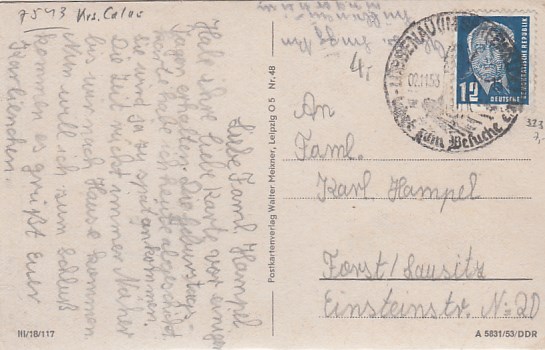 7543 Krs. Calau
Liebe Faml. Hampel
Habe Ihre liebe Karte vor einigen
Tagen erhalten. Die Geburtstags-
karte habe ich heute abgeschickt
sie wird ja zu spät ankommen.
Die Zeit reicht immer
bis wir nach Hause kommen
Nun will ich zum Schluß
kommen es grüßt Euer
Karlienchen.
III/18/117
Postkartenverlag Walter Meixner, Leipzig O 5 Nr. 48
4,-
LÜBBENAU
02.11.53
zum Besuche
12
DEUTSCHE
DEMOKRATISCHE REPUBLIK
323
An
Faml.
Karl Hampel
Forst/Lausitz
Einsteinstr. No 20
A 5831/53/DDR